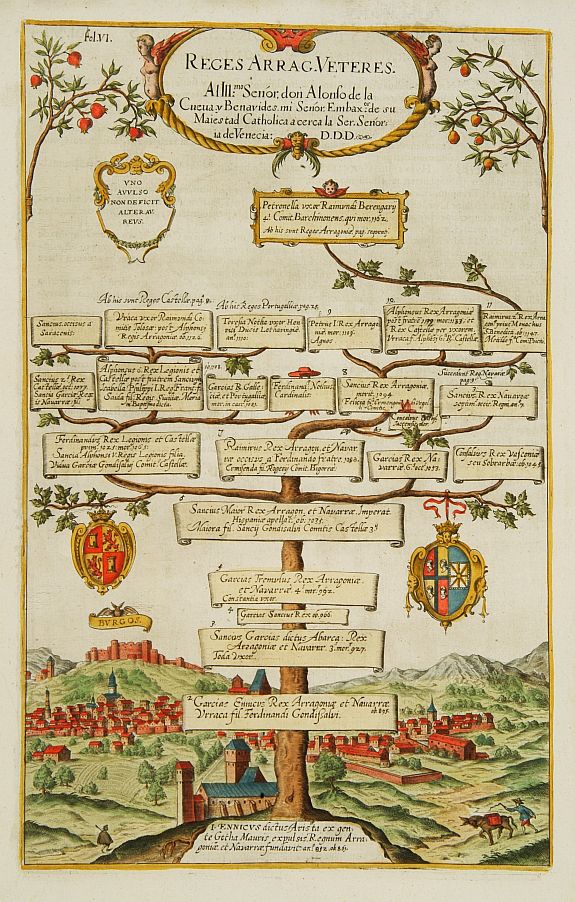 fol.VI.
REGES ARRAG. VETERES.
Al Ill.mo Señor, don Alonso de la
Cueua, y Benavides. mi Señor. Embax.or de su
Maiestad Catholica acerca la Ser. Señor:
ia de Venecia: D.D.D.
VNO
AVVLSO
NON DEFICIT
ALTER AV
REVS.
Petronella vxor Raimundi Berengary
4. Comit. Barchinonens. qui mor. 1162.
Ab his sunt Reges Arragoniæ pag.
Ab his sunt Reges Castellæ, pag. 8.
Ab his Reges Portugalliæ pag. 25.
Sancius, occisus a
Saracenis.
Vraca vxor Raimundi Co
mitis Tolosæ: post Alphonsi
Regis Arragoniæ ob. 1126.
Teresia Notha vxor Hen
rici Ducis Lotharingiæ
an. 1110.
9
Petrus I. Rex Arrago
niæ mor. 1105.
Agnes
10
Alphonsus Rex Arragoniæ
post fratrem mor. 1134. et
Rex Castellæ per vxorem
Vraca f. Alphonsi 6. R. Castellæ.
11
Raimirus 2. Rex Arra
Monachus
S. Benedicti, ob. 1147.
Sancius 2. Rex
Castellæ occ. 1077.
Sancia Garciæ Regis
is Navarræ fil.
Alphonsus 6. Rex Legionis et
Castellæ post fratrem Sancium
Isabella Philippi I. Regis Franc. f.
Saida fil. Regis
Garcias R. Gallæ
ciæ, et Portugalliæ
mor. in carc. 1081.
Ferdinand. Nothus
Cardinalis.
8
Sancius Rex Arragoniæ.
mori. 1094.
Succedunt Reg. Navarræ
Sancius Rex Navarræ
Ferdinandus Rex Legionis et Castellæ
prim. 1025. mor. 1065.
Sancia Alphonsi V. Regis Legionis filia.
Vidua Garciæ Gondisalvi Comit. Castellæ.
7
Raimirus Rex Arragon. et Navar
ræ occisus a Ferdinando fratre.
Ermisenda fi. Rogery Comit. Bigoreæ.
Garcias Rex Na
varræ. 6. occ. 1053.
Consalvus Rex Vasconiæ
seu Sobrarbiæ, ob. 1045.
6
Sancius Maior Rex Arragon. et Navarræ. Imperat.
Hispaniæ apellat. ob. 1035.
Maiora fil. Sancij Gondisalvi Comitis Castellæ 3.
5
Garcias Tremulus Rex Arragoniæ
et Navarræ 4. mor. 992.
Constantia vxor.
4
Garcias Sancius Rex ob. 966.
BVRGOS.
3
Sancius Garcias dictus Abarca: Rex
Arragoniæ et Navarræ 3. mor. 927.
Toda Vxor.
2
Garcias Ennicus Rex Arragoniæ et Navarræ
ob. 895.
Vrraca fil. Ferdinandi Gondisalvi.
I. ENNICVS dictus Aris ta ex gen
te Getha Mauris expulsis Regnum Arra
goniæ et Navarræ fundavit